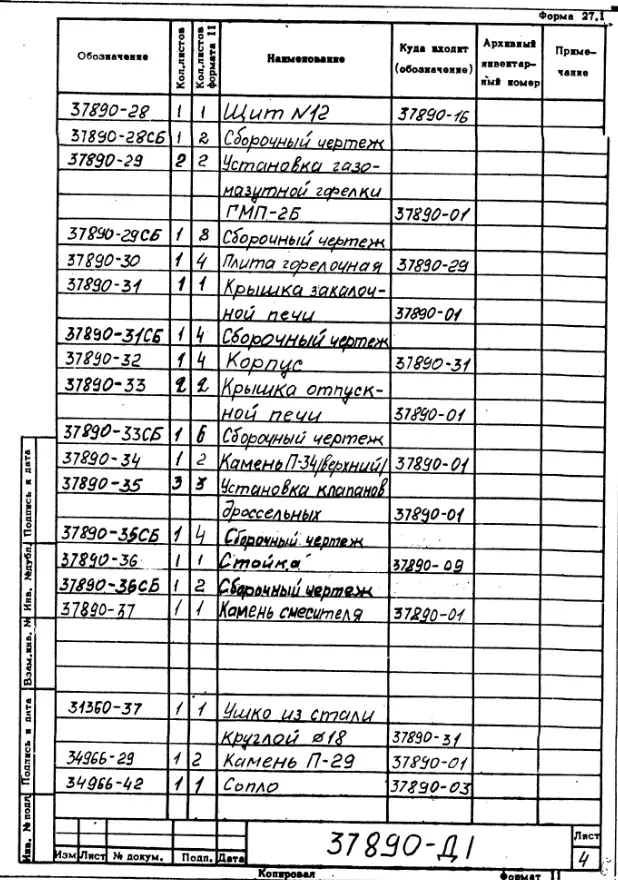 Форма 27.1
Обозначение Кол.листов Кол.листов формата 11 Наименование Куда входит (обозначение) Архивный инвентарный номер Примечание
37890-28 1 1 Щит N12 37890-16
37890-28СБ 1 2 Сборочный чертеж
37890-29 2 2 Установка газо-
мазутной горелки
ГМП-2Б 37890-01
37890-29СБ 1 8 Сборочный чертеж
37890-30 1 4 Плита горелочная 37890-29
37890-31 1 1 Крышка закалоч-
ной печи 37890-01
37890-31СБ 1 4 Сборочный чертеж
37890-32 1 4 Корпус 37890-31
37890-33 2 2 Крышка отпуск-
ной печи 37890-01
37890-33СБ 1 6 Сборочный чертеж
37890-34 1 2 Камень П-34/верхний/ 37890-01
37890-35 3 3 Установка клапанов
дроссельных 37890-01
37890-35СБ 1 4 Сборочный чертеж
37890-36 1 1 Стойка 37890-09
37890-36СБ 1 2 Сборочный чертеж
37890-37 1 1 Камень смесителя 37890-01
31360-37 1 1 Ушко из стали
круглой ø18 37890-31
34966-29 1 2 Камень П-29 37890-01
34966-42 1 1 Сопло 37890-03
Подпись и дата
Инв. №дубл.
Взам.инв. №
Подпись и дата
Инв. № подл
Изм Лист № докум. Подп. Дата
37890-Д1
Лист
4
Копировал Формат 11